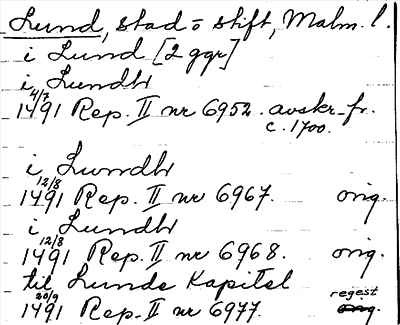 Lund, stad o stift, Malm. l.
i Lund [2 ggr]
i Lundh
4/7
1491 Rep. II nr 6952. avskr. fr.
c. 1700.
i Lundh
12/8
1491 Rep. II nr 6967. orig.
i Lundh
12/8
1491 Rep. II nr 6968. orig.
til Lunde Kapitel
regest
20/9
1491 Rep. II nr 6977. orig.